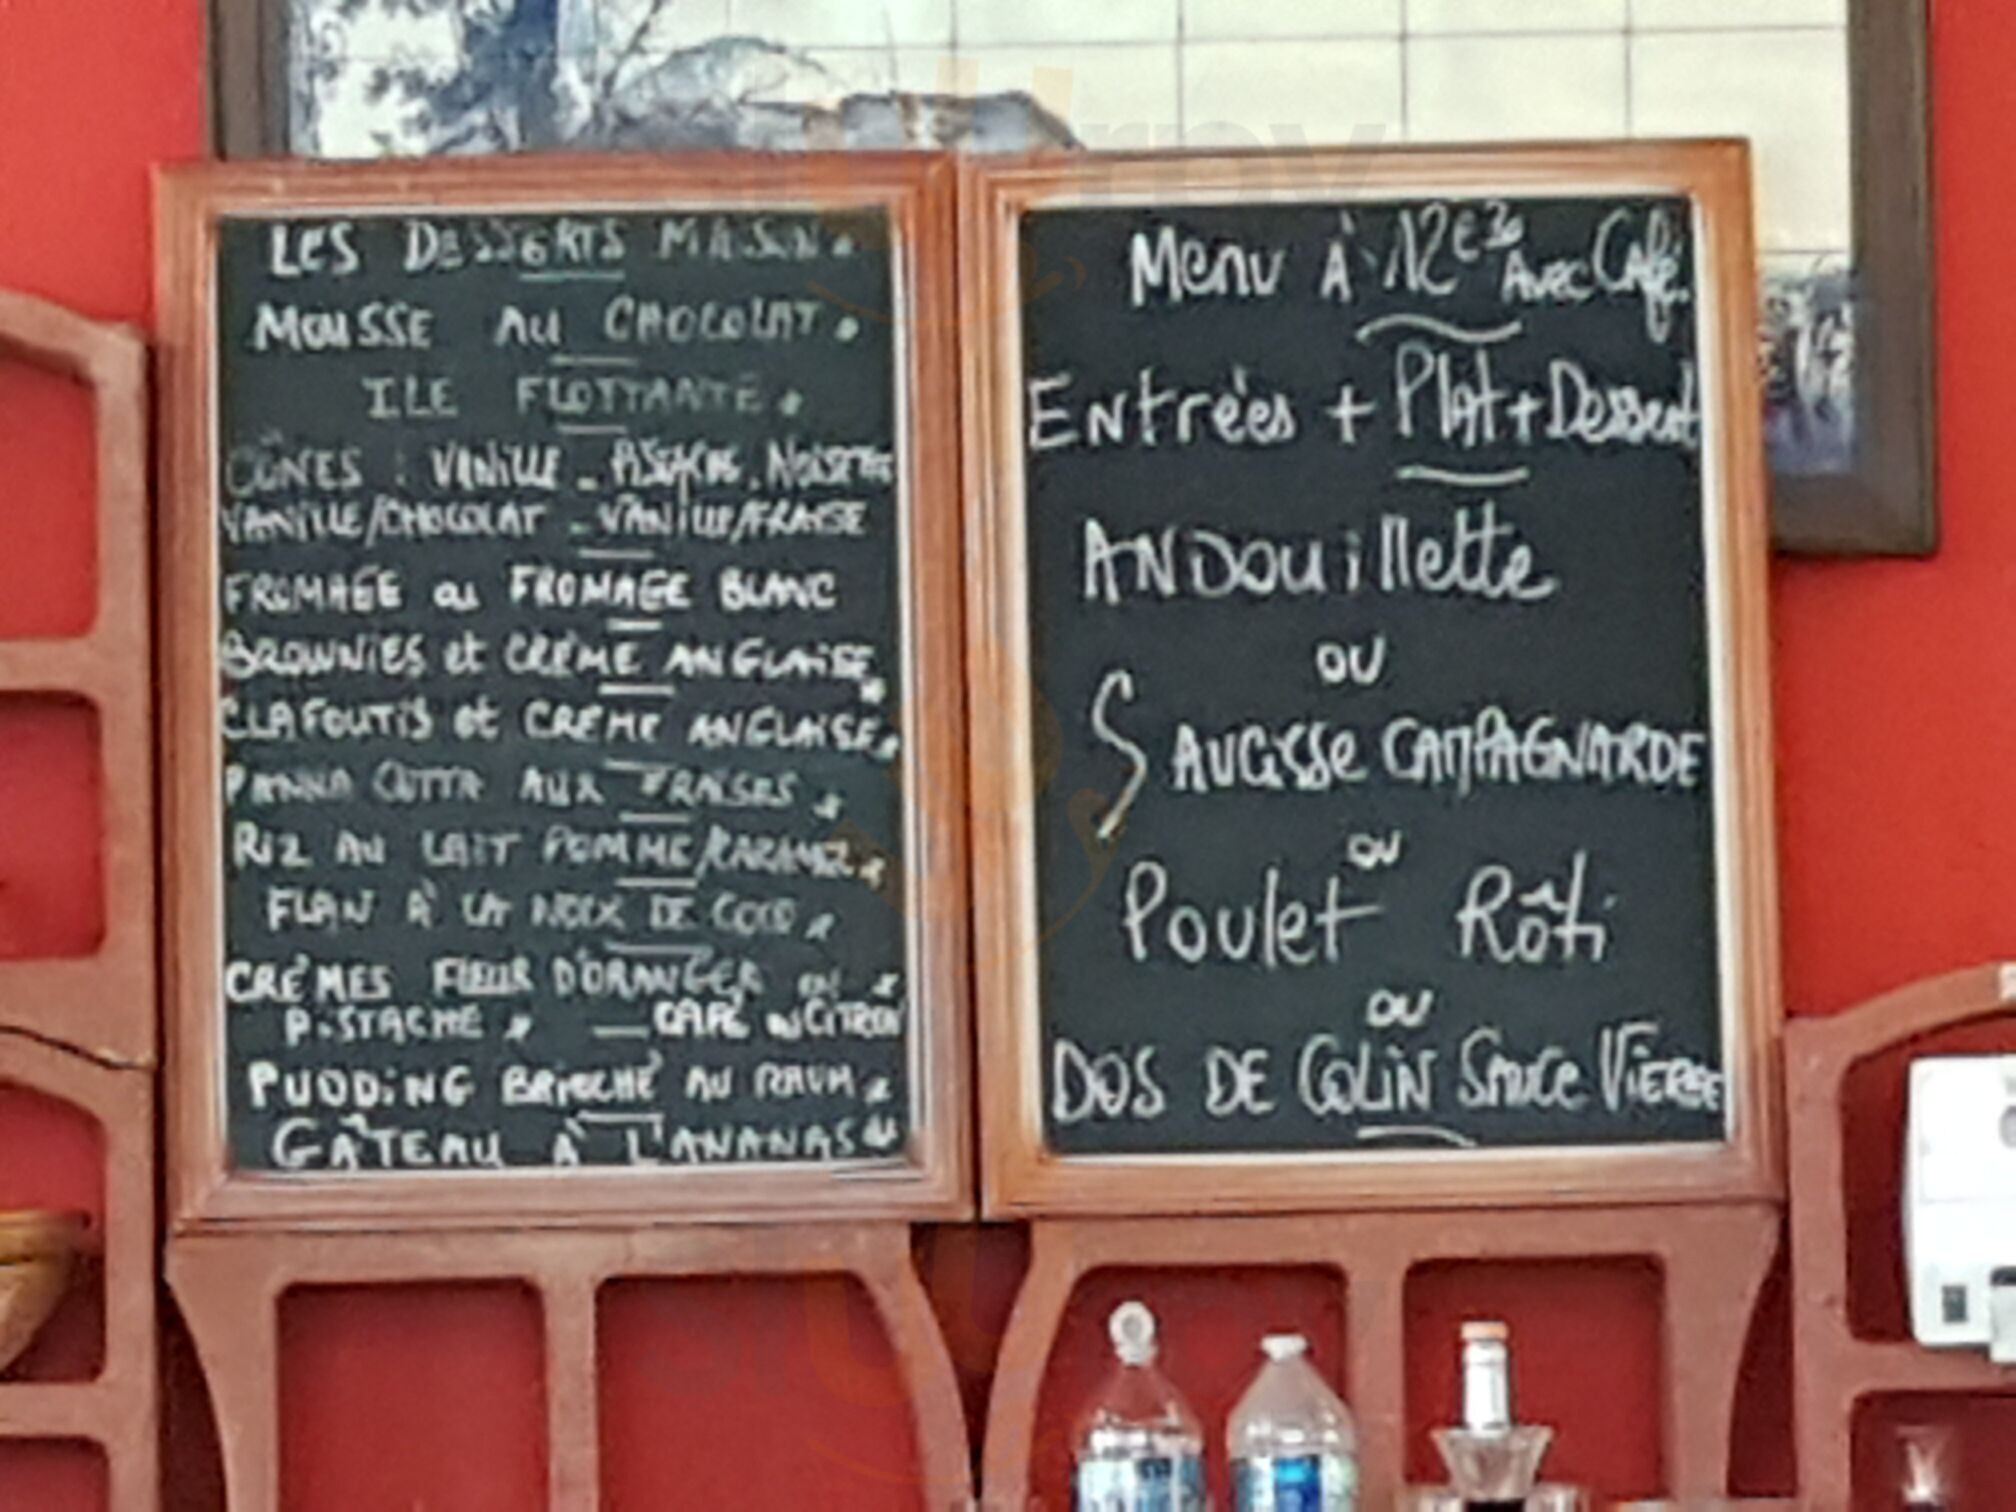 LES DESSERTS MAISON
MOUSSE AU CHOCOLAT
ILE FLOTTANTE
CÔNES : VANILLE - PISTACHE - NOISETTE
VANILLE/CHOCOLAT - VANILLE/FRAISE
FROMAGE ou FROMAGE BLANC
BROWNIES et CRÈME ANGLAISE
CLAFOUTIS et CRÈME ANGLAISE
PANNA COTTA AUX FRAISES
RIZ AU LAIT POMME/KARAMEL
FLAN À LA NOIX DE COCO
CRÈMES FLEUR D'ORANGER ou
PISTACHE CAFÉ ou CITRON
PUDDING BRIOCHÉ AU RHUM
GÂTEAU À L'ANANAS
Menu À 12€30 Avec Café
Entrées + Plat + Dessert
ANDOUillette
OU
SAUCISSe CAMPAGNARDE
OU
Poulet Rôti
OU
DOS DE COLIN SAUCE VIERGE